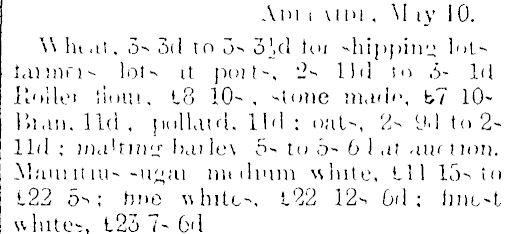 ADELAIDE, May 10.
Wheat, 3s 3d to 3s 3½d for shipping lots
farmers lots at ports, 2s 11d to 3s 1d
Roller flour, £8 10s, stone made, £7 10s
Bran, 11d, pollard, 11d; oats, 2s 9d to 2s
11d; malting barley 5s to 5s 6d at auction.
Mauritius sugar medium white, £11 15s to
£22 5s; fine whites, £22 12s 6d; finest
whites, £23 7s 6d